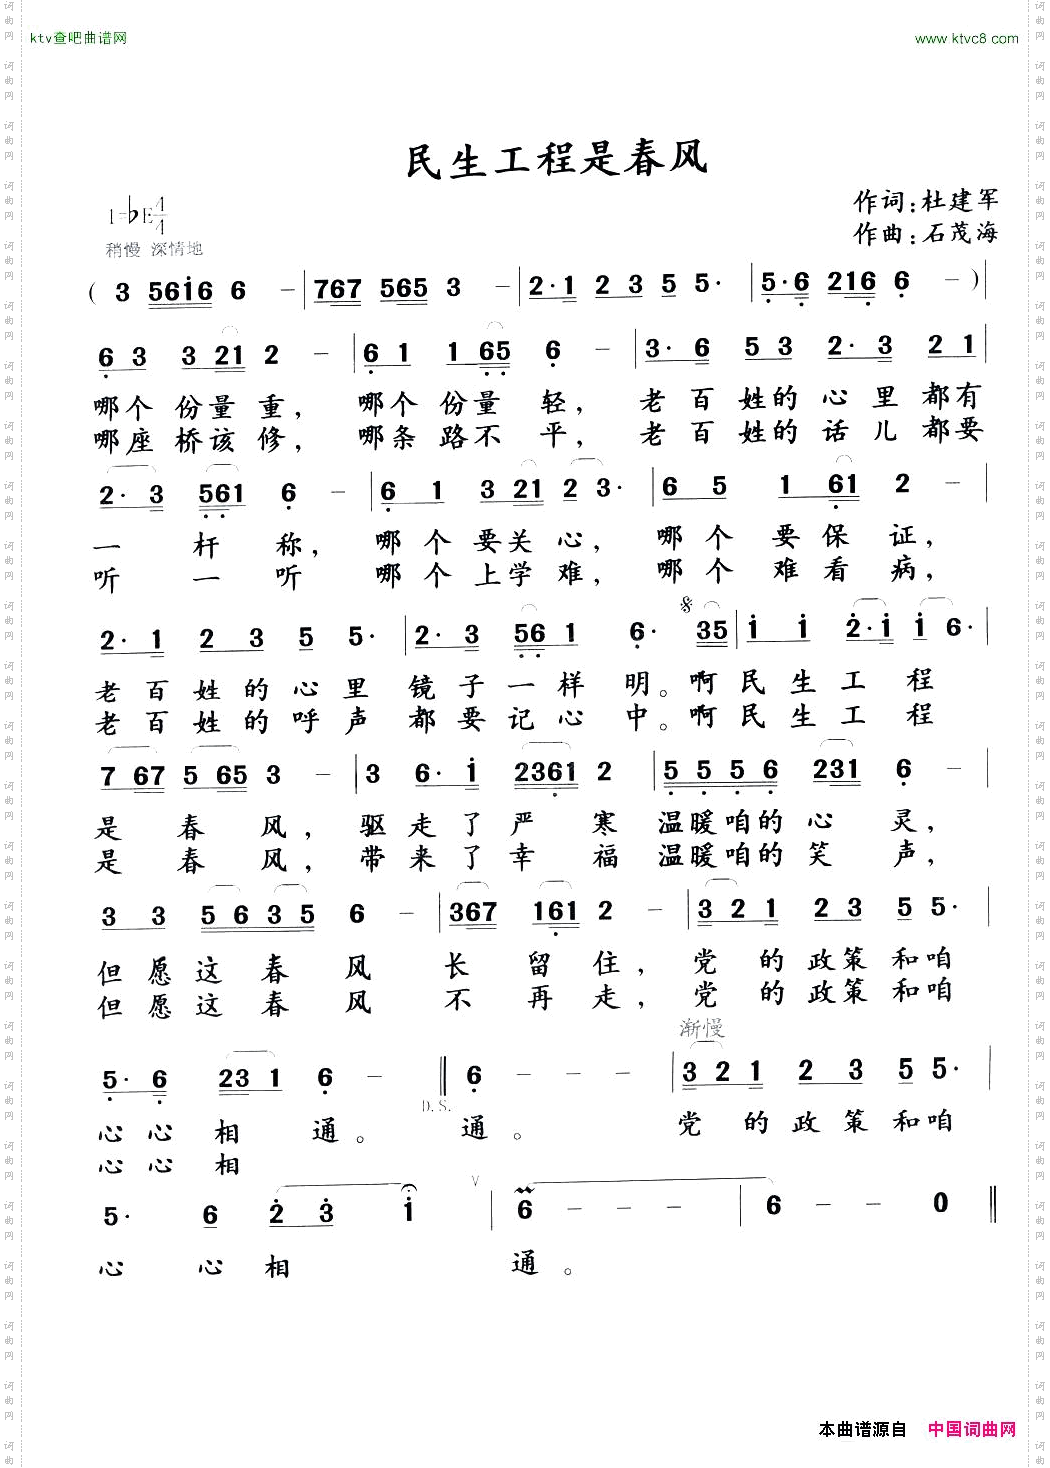 ktv查吧曲谱网 www.ktvc8.com
民生工程是春风
作词:杜建军
1=♭E 4/4
作曲:石茂海
稍慢 深情地
( 3 56i6 6 - | 767 565 3 - | 2·1 2 3 5 5· | 5·6 216 6 - ) |
6 3 3 21 2 - | 6 1 1 65 6 - | 3· 6 5 3 2· 3 2 1 |
哪个 份量 重, 哪个 份量 轻, 老 百 姓的 心 里 都有
哪座 桥该 修, 哪条 路不 平, 老 百 姓的 话 儿 都要
2· 3 561 6 - | 6 1 3 21 2 3· | 6 5 1 61 2 - |
一 杆 称, 哪 个 要关 心, 哪 个 要 保 证,
听 一 听 哪 个 上学 难, 哪 个 难 看 病,
2· 1 2 3 5 5· | 2· 3 56 1 6· 35 | i i 2·i i 6· |
老 百 姓 的 心 里 镜 子 一 样 明。啊 民 生 工 程
老 百 姓 的 呼 声 都 要 记 心 中。啊 民 生 工 程
7 67 5 65 3 - | 3 6· i 2361 2 | 5 5 5 6 231 6 - |
是 春 风, 驱 走 了 严 寒 温暖咱的 心 灵,
是 春 风, 带 来 了 幸 福 温暖咱的 笑 声,
3 3 5 6 3 5 6 - | 367 161 2 - | 3 2 1 2 3 5 5· |
但 愿 这 春 风 长 留 住, 党 的 政 策 和 咱
但 愿 这 春 风 不 再 走, 党 的 政 策 和 咱
渐慢
5· 6 23 1 6 - ‖ 6 - - - | 3 2 1 2 3 5 5· |
D.S.
心 心 相 通。 通。 党 的 政 策 和 咱
心 心 相
5· 6 2 3 i | 6 - - - | 6 - - 0 ‖
心 心 相 通。
本曲谱源自 中国词曲网